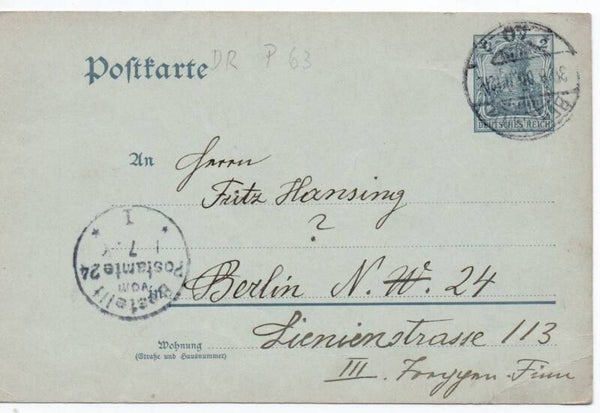 DR P 63
Postkarte
DEUTSCHES REICH
An
Herrn
Fritz Hansing
?
Berlin N. W. 24
Bestellt
vom
Postamte 24
7.
I
Wohnung
(Straße und Hausnummer)
Lienienstrasse 113
III.